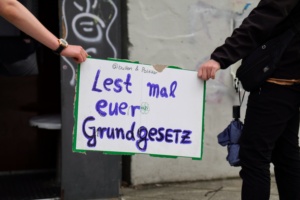 Lest mal
euer
GrundgeSETZ